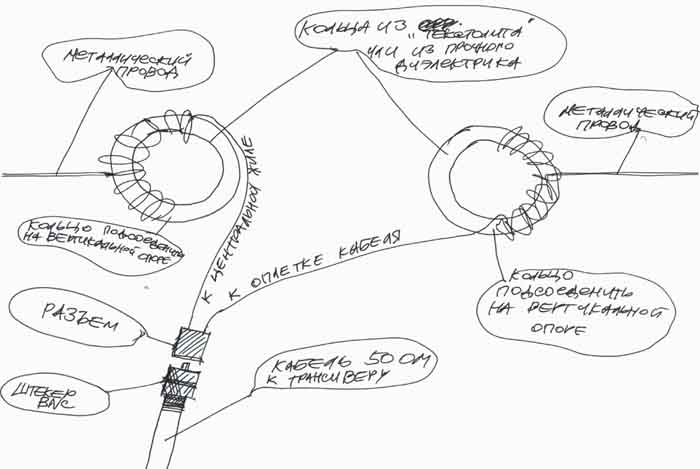 МЕТАЛЛИЧЕСКИЙ
ПРОВОД
КОЛЬЦА ИЗ
"ТЕКСТОЛИТА"
ИЛИ ИЗ ПРОЧНОГО
ДИЭЛЕКТРИКА
МЕТАЛИЧЕСКИЙ
ПРОВОД
КОЛЬЦО ПОДСОЕДЕНИТЬ
НА ВЕРТИКАЛЬНОЙ ОПОРЕ
К ЦЕНТРАЛЬНОЙ ЖИЛЕ
К ОПЛЕТКЕ КАБЕЛЯ
КОЛЬЦО
ПОДСОЕДЕНИТЬ
НА ВЕРТИКАЛЬНОЙ
ОПОРЕ
РАЗЪЕМ
ШТЕКЕР
BNC
КАБЕЛЬ 50 ОМ
К ТРАНСИВЕРУ